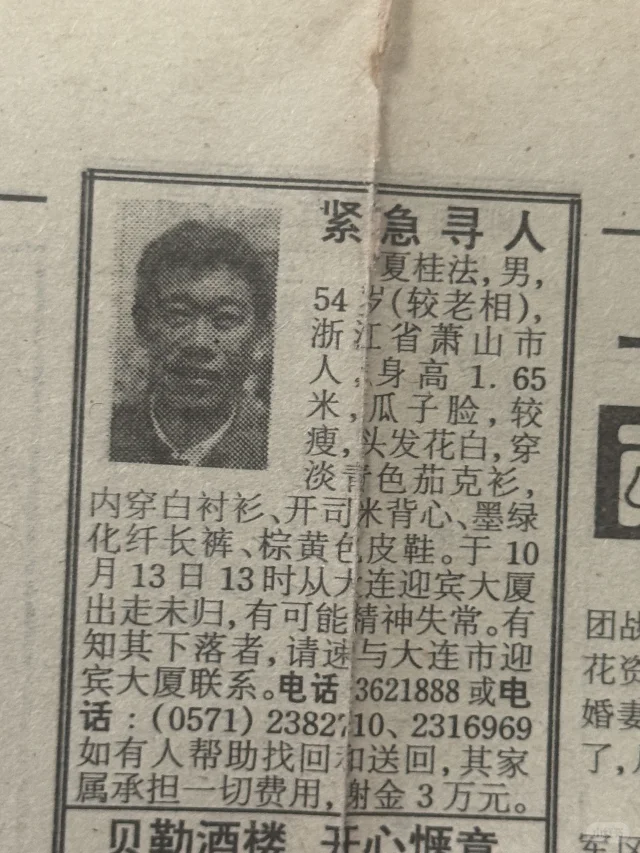 紧急寻人
夏桂法,男,
54岁(较老相),
浙江省萧山市
人,身高1.65
米,瓜子脸,较
瘦,头发花白,穿
淡青色茄克衫,
内穿白衬衫、开司米背心、墨绿
化纤长裤、棕黄色皮鞋。于10
月13日13时从大连迎宾大厦
出走未归,有可能精神失常。有
知其下落者,请速与大连市迎
宾大厦联系。电话3621888或电
话:(0571)2382710、2316969
如有人帮助找回和送回,其家
属承担一切费用,谢金3万元。
贝勒酒楼 开心惬意
团战
花资
婚妻
了,
军区